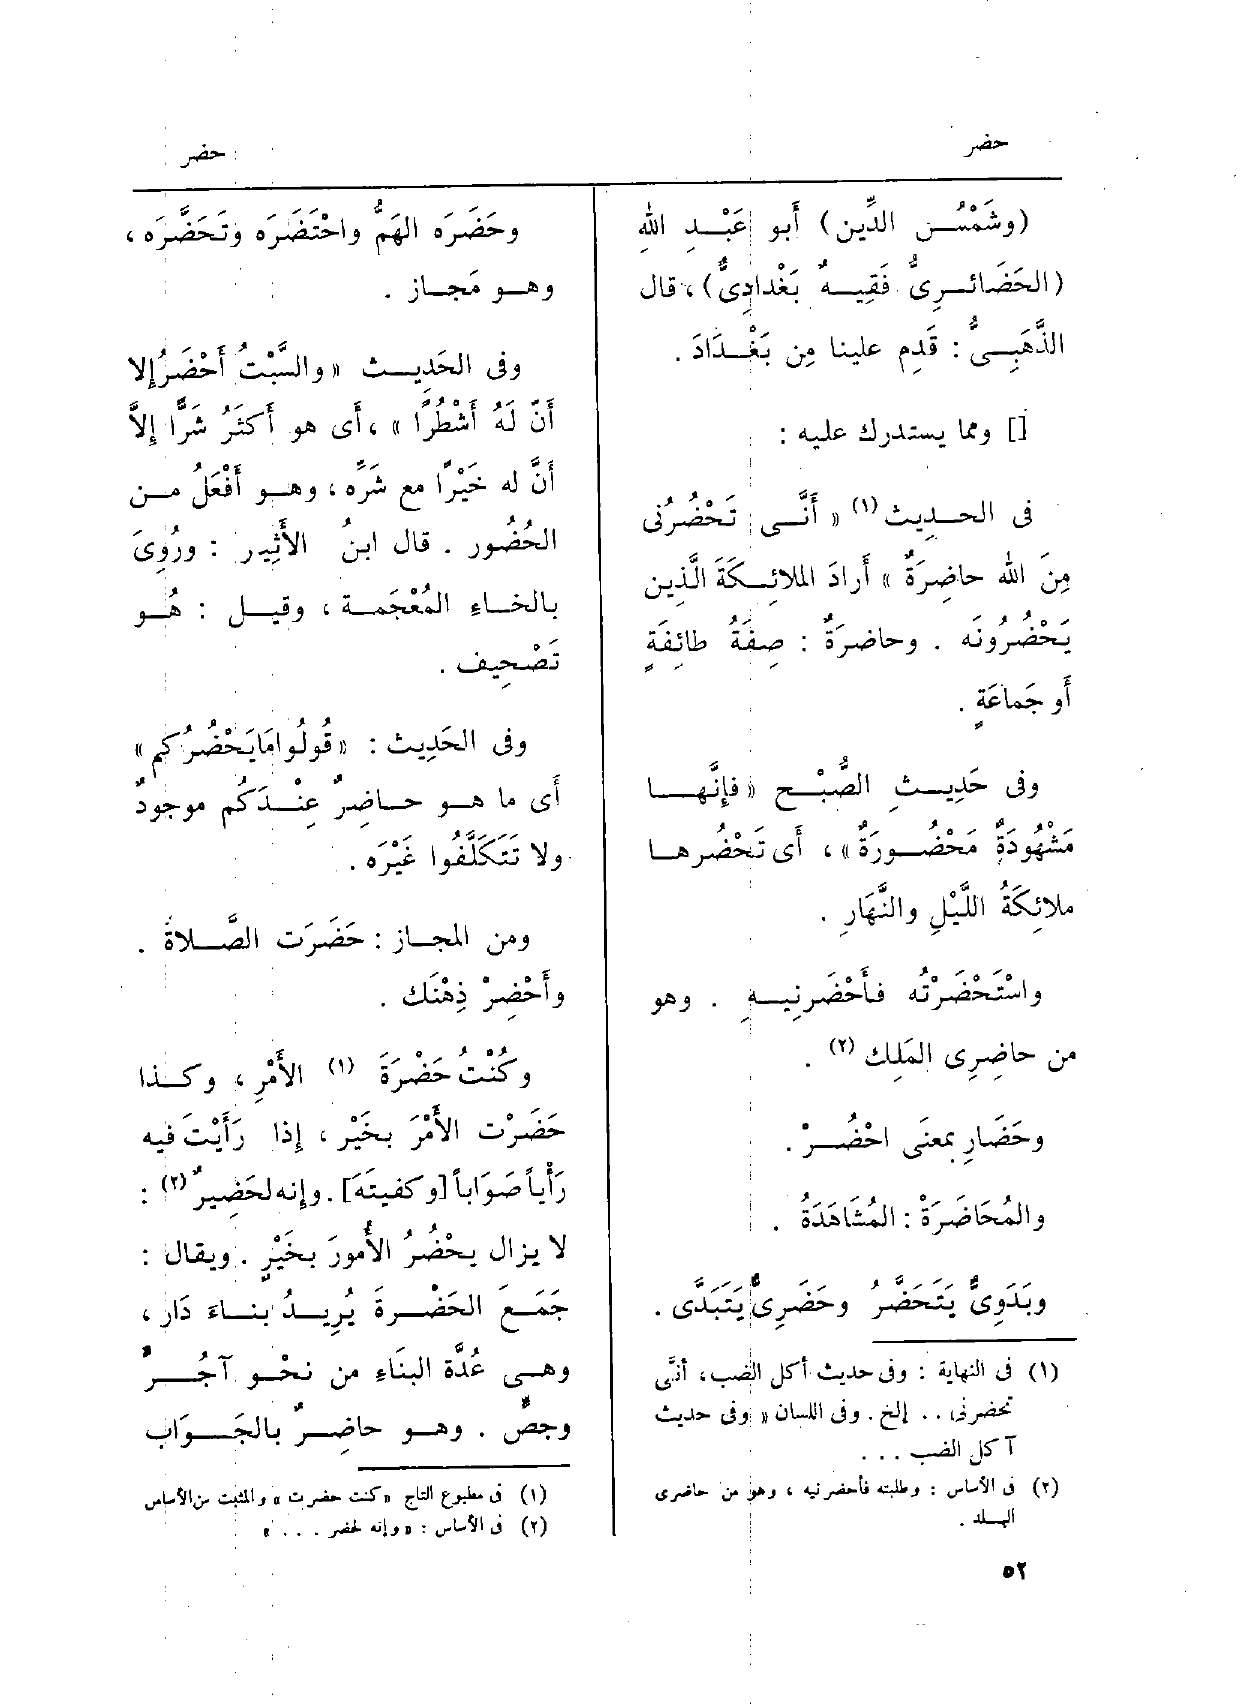 حضر
حضر
(وشَمْسُ الدِّين) أَبو عَبْدِ اللهِ
(الحَضَائرىُّ فَقِيهٌ بَغْدادِىٌّ)، قال
الذَّهَبِىُّ : قَدِم علينا مِن بَغْدَادَ .
[] ومما يستدرك عليه :
فى الحديث (١) « أَنَّى تَحْضُرُنى
مِنَ الله حاضِرَةٌ » أَرادَ الملائِكَةَ الَّذِين
يَحْضُرُونَه . وحاضرَةٌ : صِفَةُ طائِفَةٍ
أَو جَماعَةٍ .
وفى حَدِيثِ الصُّبْح « فإِنَّها
مَشْهُودَةٌ مَحْضُورَةٌ » ، أَى تَحْضُرها
ملائِكَةُ اللَّيْلِ والنَّهَارِ .
واسْتَحْضَرْتُه فأَحْضَرنِيهِ . وهو
من حاضِرِى المَلِك (٢) .
وحَضَارِ بمعنَى احْضُرْ .
والمُحَاضَرَةُ : المُشَاهَدَةُ .
وبَدَوِىٌّ يَتَحَضَّرُ وحَضَرِىٌّ يَتَبَدَّى .
(١) فى النهاية : وفى حديث أكل الضب، أنَّى
تحضرنى .. إلخ . وفى اللسان « وفى حديث
آكل الضب ...
(٢) فى الأساس : وطلبته فأحضرنيه ، وهو من حاضرى
البلد .
وحَضَرَه الهَمُّ واحْتَضَرَه وتَحَضَّرَه ،
وهو مَجاز .
وفى الحَدِيث « والسَّبْتُ أَحْضَرُ إِلا
أَنّ لَهُ أَشْطُرًا » ، أَى هو أَكثَرُ شَرًّا إِلاَّ
أَنَّ له خَيْرًا مع شَرِّه ، وهو أَفْعَلُ من
الحُضُور . قال ابنُ الأَثِير : ورُوِىَ
بالخاءِ المُعْجَمة ، وقيل : هُو
تَصْحِيف .
وفى الحَدِيث : « قُولُوا مَا يَحْضُرُكم »
أَى ما هو حاضِرٌ عِنْدَكُم موجودٌ
ولا تَتَكَلَّفُوا غَيْرَه .
ومن المجاز : حَضَرَت الصَّلاةُ .
وأَحْضِرْ ذِهْنَك .
وكُنْتُ حَضْرَةَ (١) الأَمْرِ ، وكذا
حَضَرْت الأَمْرَ بخَيْر ، إِذا رَأَيْتَ فيه
رَأْياً صَوَاباً [وكفيتَهَ] . وإنه لحَضِيرٌ (٢) :
لا يزال يحْضُرُ الأُمورَ بخَيْرٍ . ويقال :
جَمَعَ الحَضْرةَ يُرِيدُ بناءَ دَار ،
وهى عُدَّة البِنَاءِ من نحْو آجُرٍّ
وجصٍّ . وهو حاضِرٌ بالجَوَاب
(١) فى مطبوع التاج «كنت حضرت » والمثبت من الأساس
(٢) فى الأساس : «وإنه لحضر ... »
٥٢